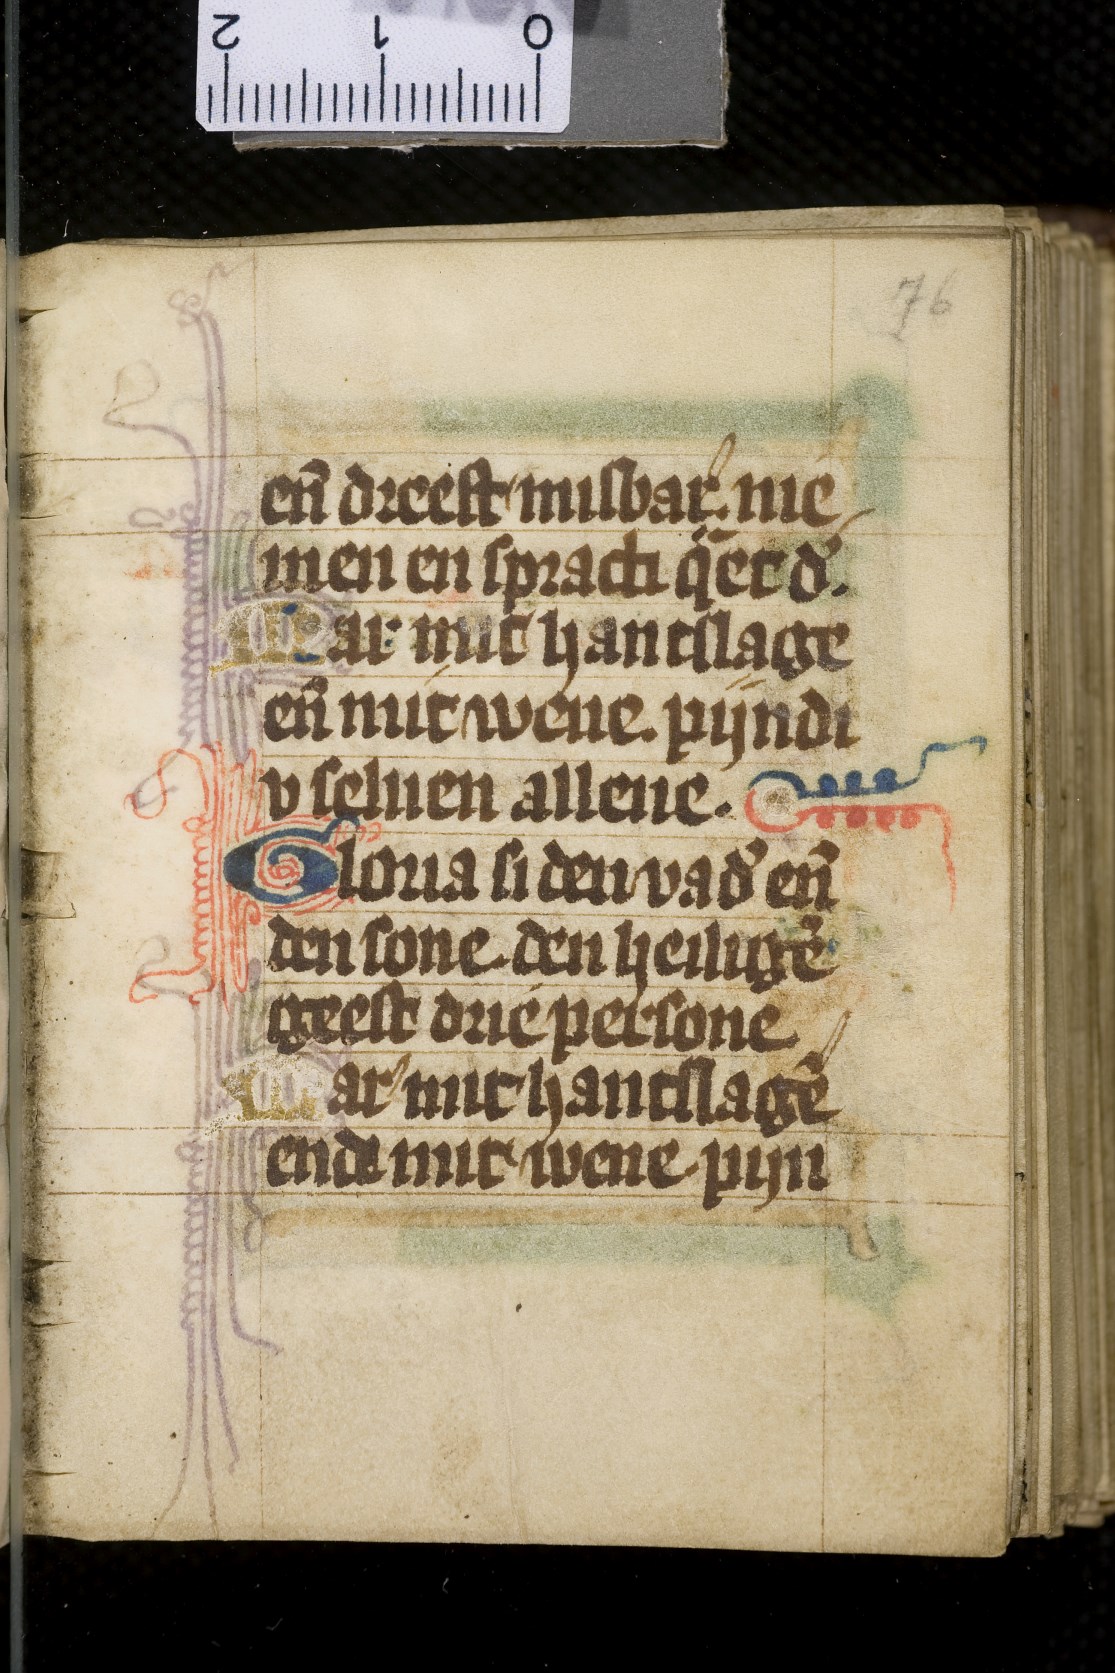 2 1 0
76
en̄ dreest misbar. nie
men en sprach q̄et d̕.
Mar mit hantslage
en̄ mit wene. pijndi
v seluen allene.
Gloria si den vad̕ en̄
den sone. den heilugē
geest drie persone
Mar mit hantslagē
ende mit wene. pijn